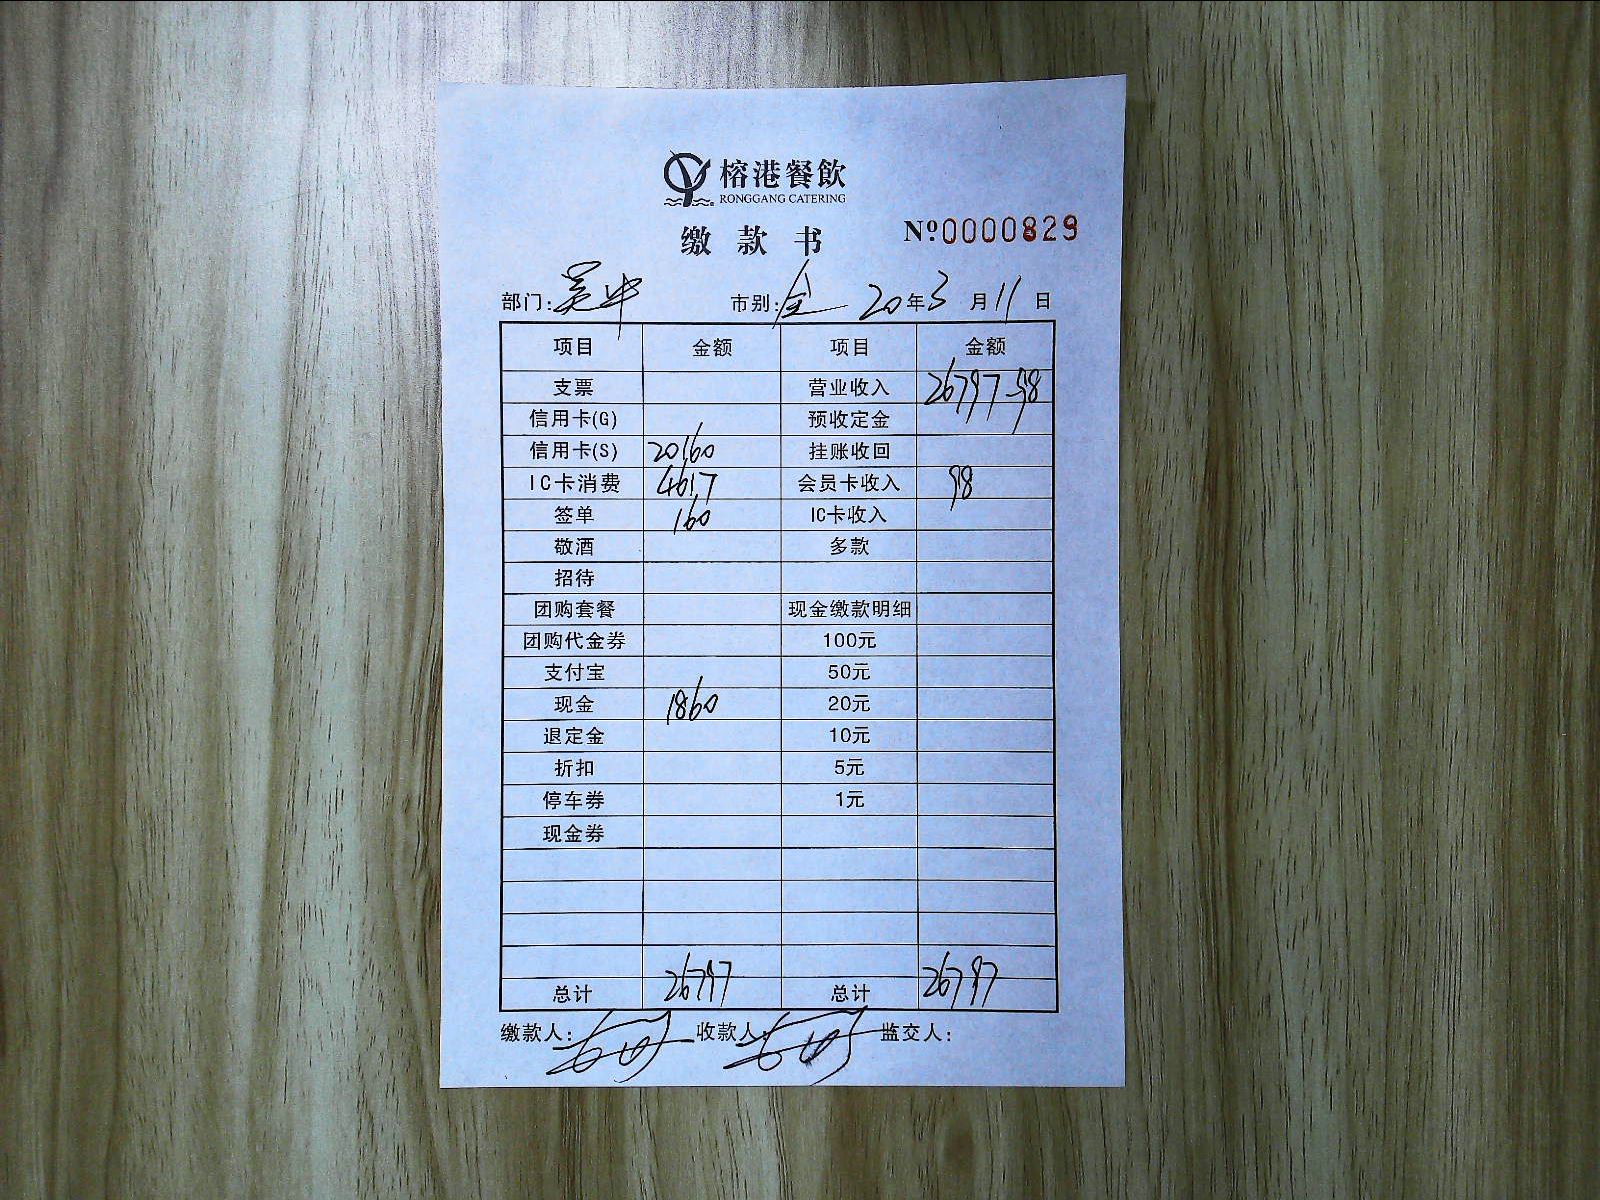 榕港餐飲
RONGGANG CATERING
缴款书 Nº0000829
部门: 吴中 市别: 全 20年3月11日
项目 金额 项目 金额
支票 营业收入 26797-98
信用卡(G) 预收定金
信用卡(S) 20160 挂账收回
IC卡消费 4617 会员卡收入 98
签单 160 IC卡收入
敬酒 多款
招待
团购套餐 现金缴款明细
团购代金券 100元
支付宝 50元
现金 1860 20元
退定金 10元
折扣 5元
停车券 1元
现金券
总计 26797 总计 26797
缴款人: 收款人: 监交人: